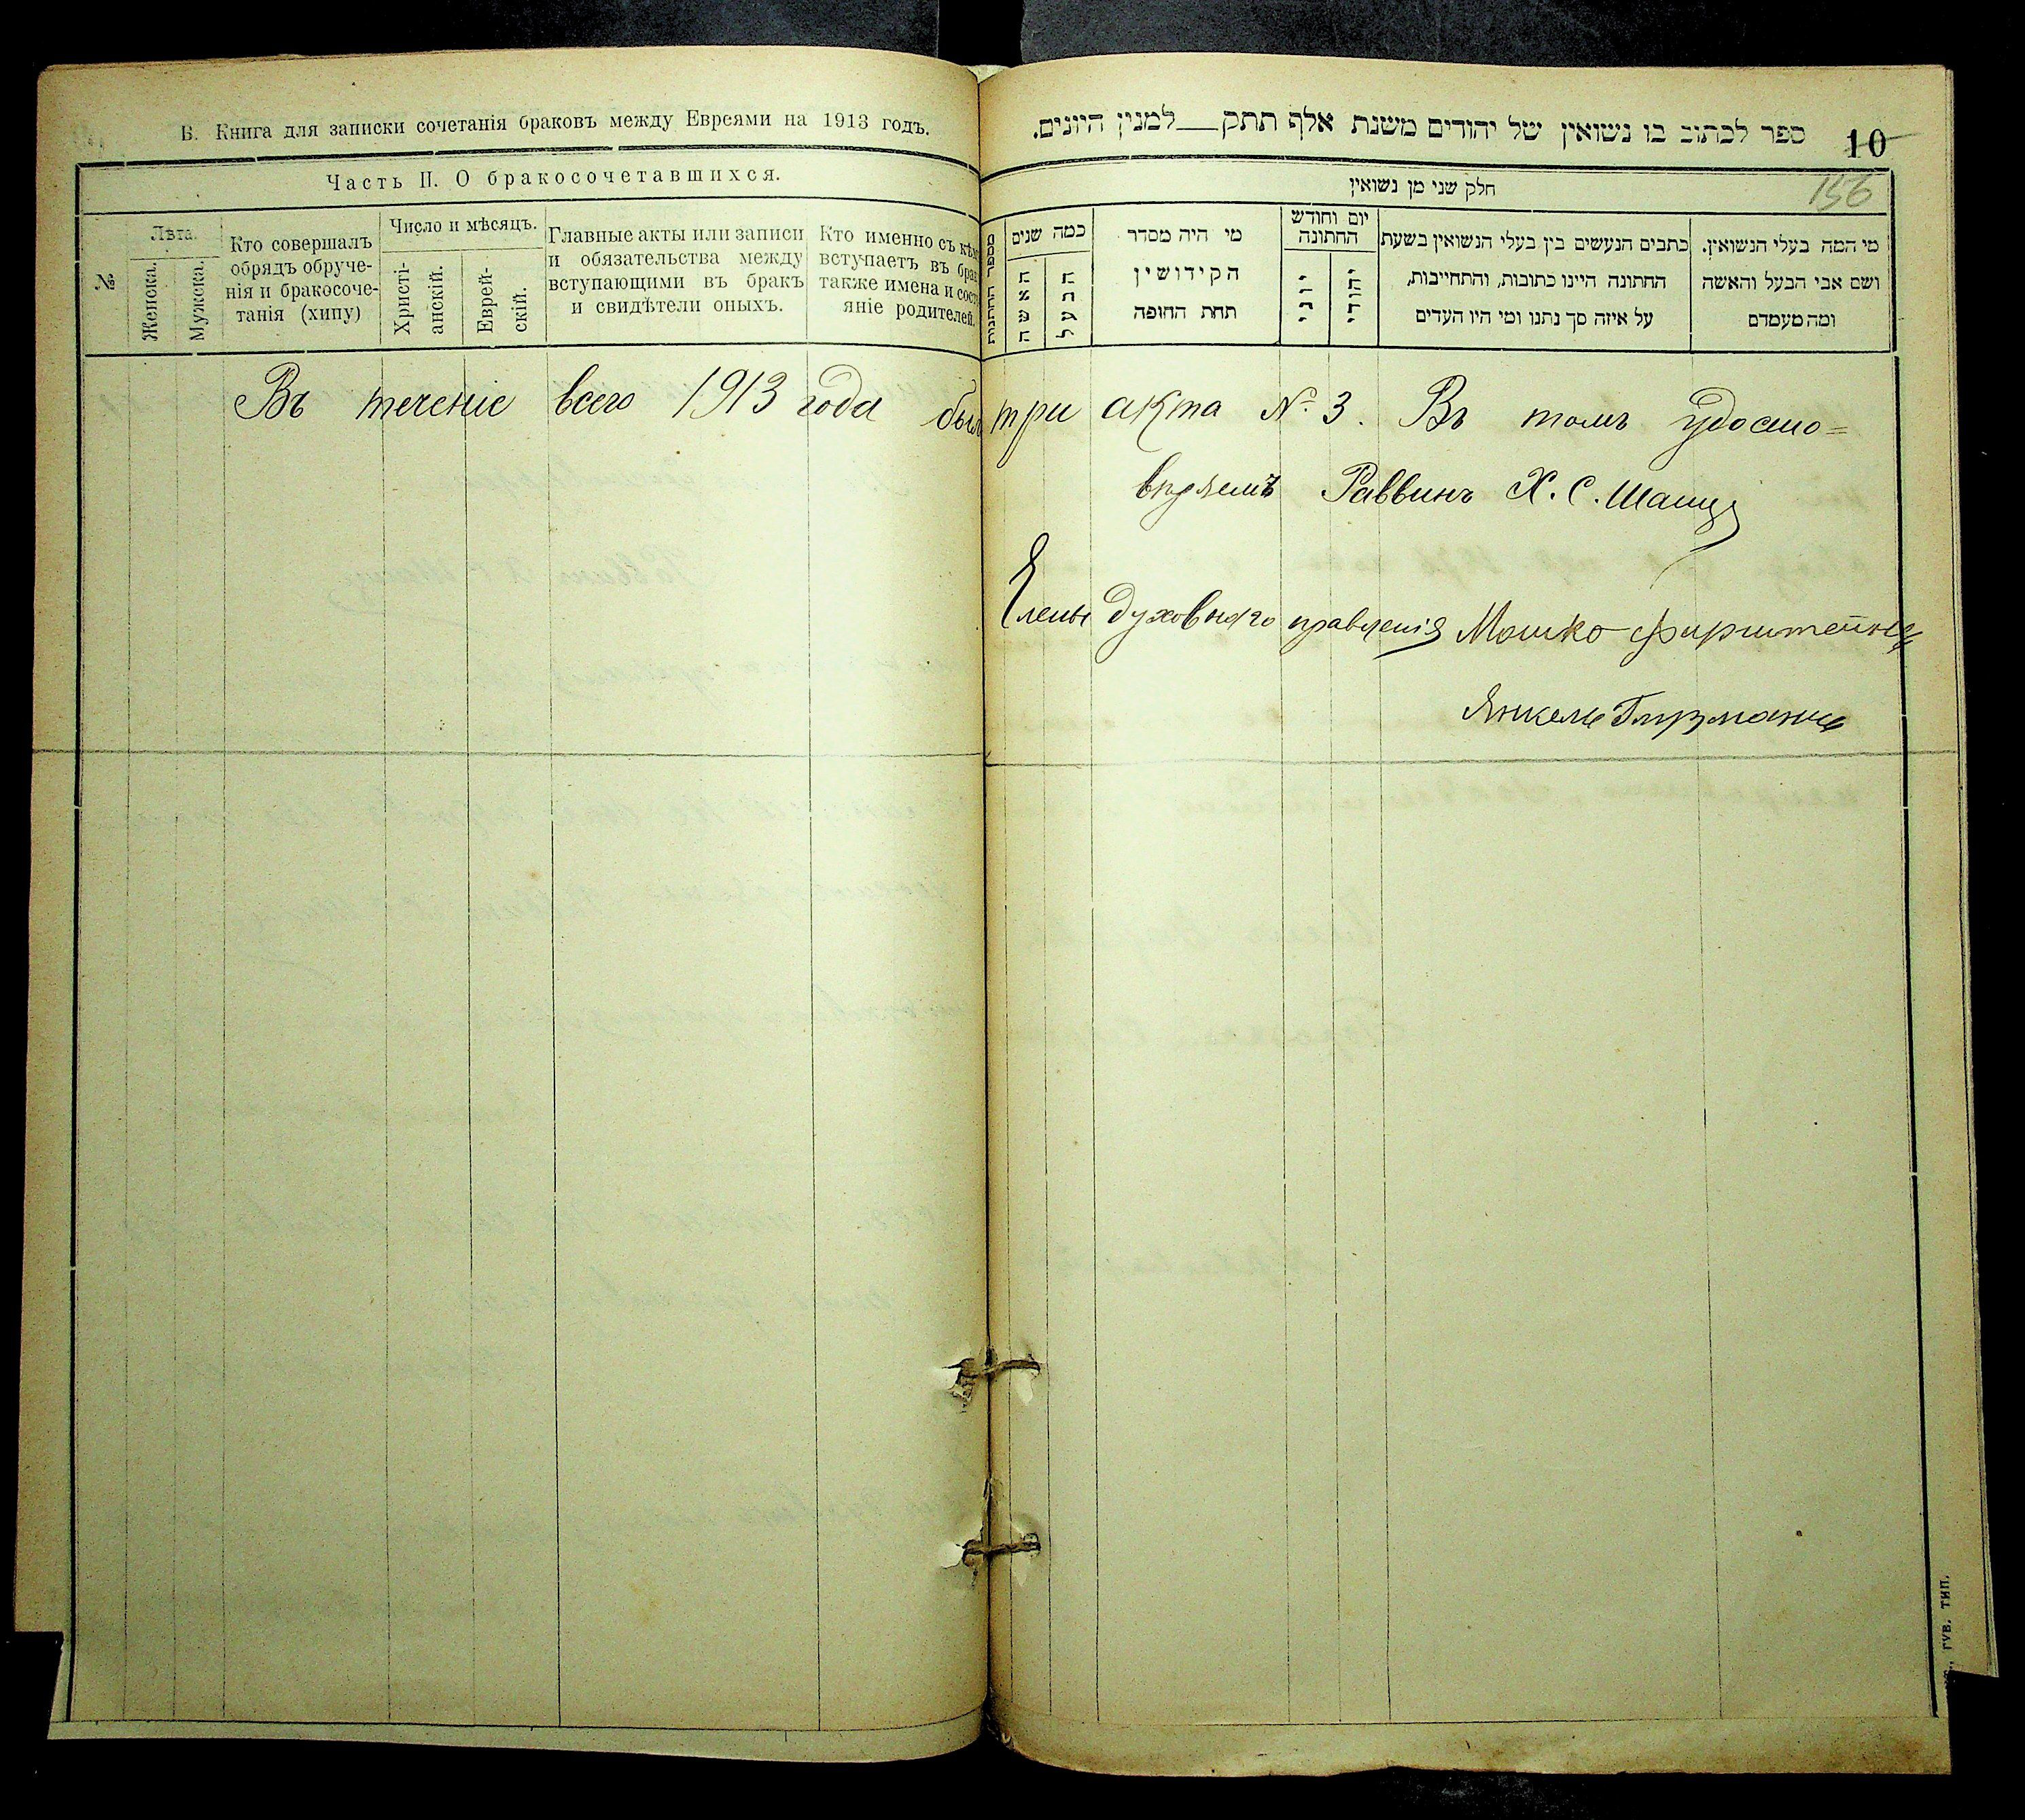 Б. Книга для записки сочетанія браковъ между Евреями на 1913 годъ.
Часть II. О бракосочетавшихся.
№
Лѣта.
Женска.
Мужска.
Кто совершалъ
обрядъ обруче-
нія и бракосоче-
танія (хипу)
Число и мѣсяцъ.
Христі-
анскій.
Еврей-
скій.
Главные акты или записи
и обязательства между
вступающими въ бракъ
и свидѣтели оныхъ.
Кто именно съ кѣм
вступаетъ въ брак
также имена и состо
яніе родителей.
ספר לכתוב בו נשואין של יהודים משנת אלף תתק__למנין היונים.
10
156
חלק שני מן נשואין
מספר החתונות
כמה שנים
האשה
הבעל
מי היה מסדר
הקידושין
תחת החופה
יום וחודש
החתונה
יוני
יהודי
כתבים הנעשים בין בעלי הנשואין בשעת
החתונה היינו כתובות, והתחייבות,
על איזה סך נתנו ומי היו העדים
מי המה בעלי הנשואין.
ושם אבי הבעל והאשה
ומה מעמדם
Въ теченіе всего 1913 года был три акта № 3. Въ томъ удосто=
вѣряемъ Раввинъ Х. С. Шацъ
Члены духовнаго правленія Мошко Фирштейнъ
Янкель Глузманъ
ГУБ. ТИП.